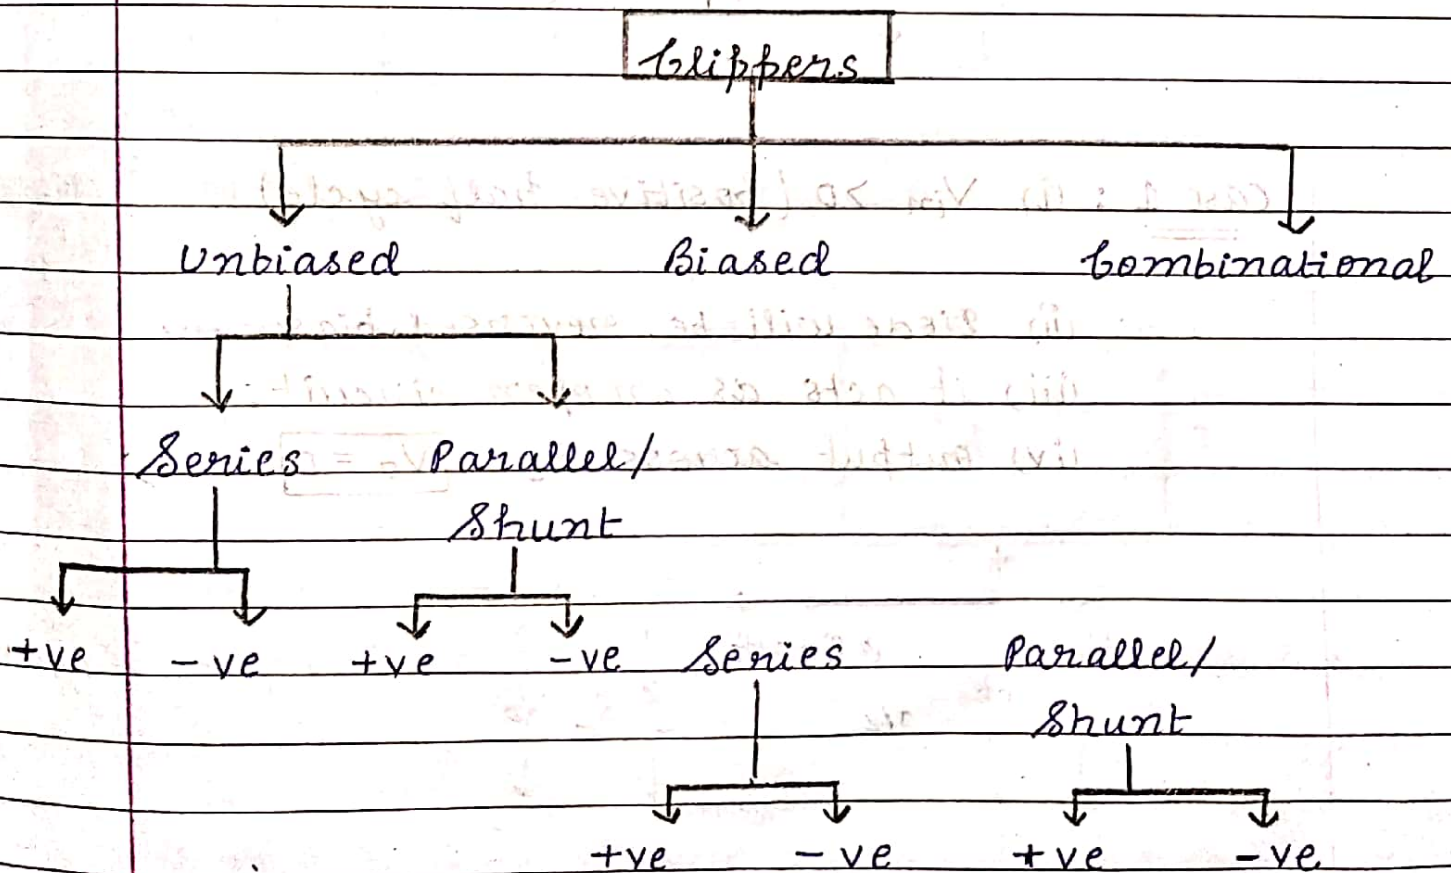 Clippers
Unbiased Biased Combinational
Series Parallel/
Shunt
+ve -ve +ve -ve Series Parallel/
Shunt
+ve -ve +ve -ve